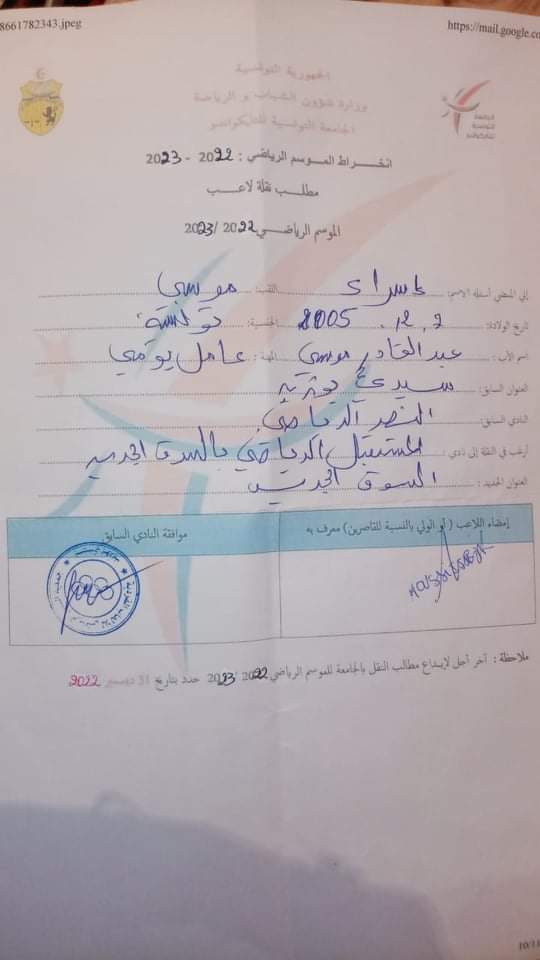 8661782343.jpeg
https://mail.google.co
الجمهورية التونسية
وزارة شؤون الشباب و الرياضة
الجامعة التونسية للتايكواندو
الجامعة
التونسية
للتايكواندو
انخراط الموسم الرياضي : 2022 - 2023
مطلب نقلة لاعب
الموسم الرياضي 2022 /2023
إني الممضي أسفله الاسم: اسراء اللقب: موسى
تاريخ الولادة: 2 . 12 . 2005 الجنسية: تونسية
اسم الأب : عبد القادر موسى المهنة: عامل يومي
العنوان السابق: سيدي
النادي السابق: الرياضي
أرغب في النقلة إلى نادي : المستقبل الرياضي بالسوق الجديد
العنوان الجديد : السوق الجديد
إمضاء اللاعب ( أو الولي بالنسبة للقاصرين) معرف به
موافقة النادي السابق
ملاحظة : آخر أجل لإيداع مطالب النقل بالجامعة للموسم الرياضي 2022 2023 حدد بتاريخ 31 ديسمبر 2022
10/11